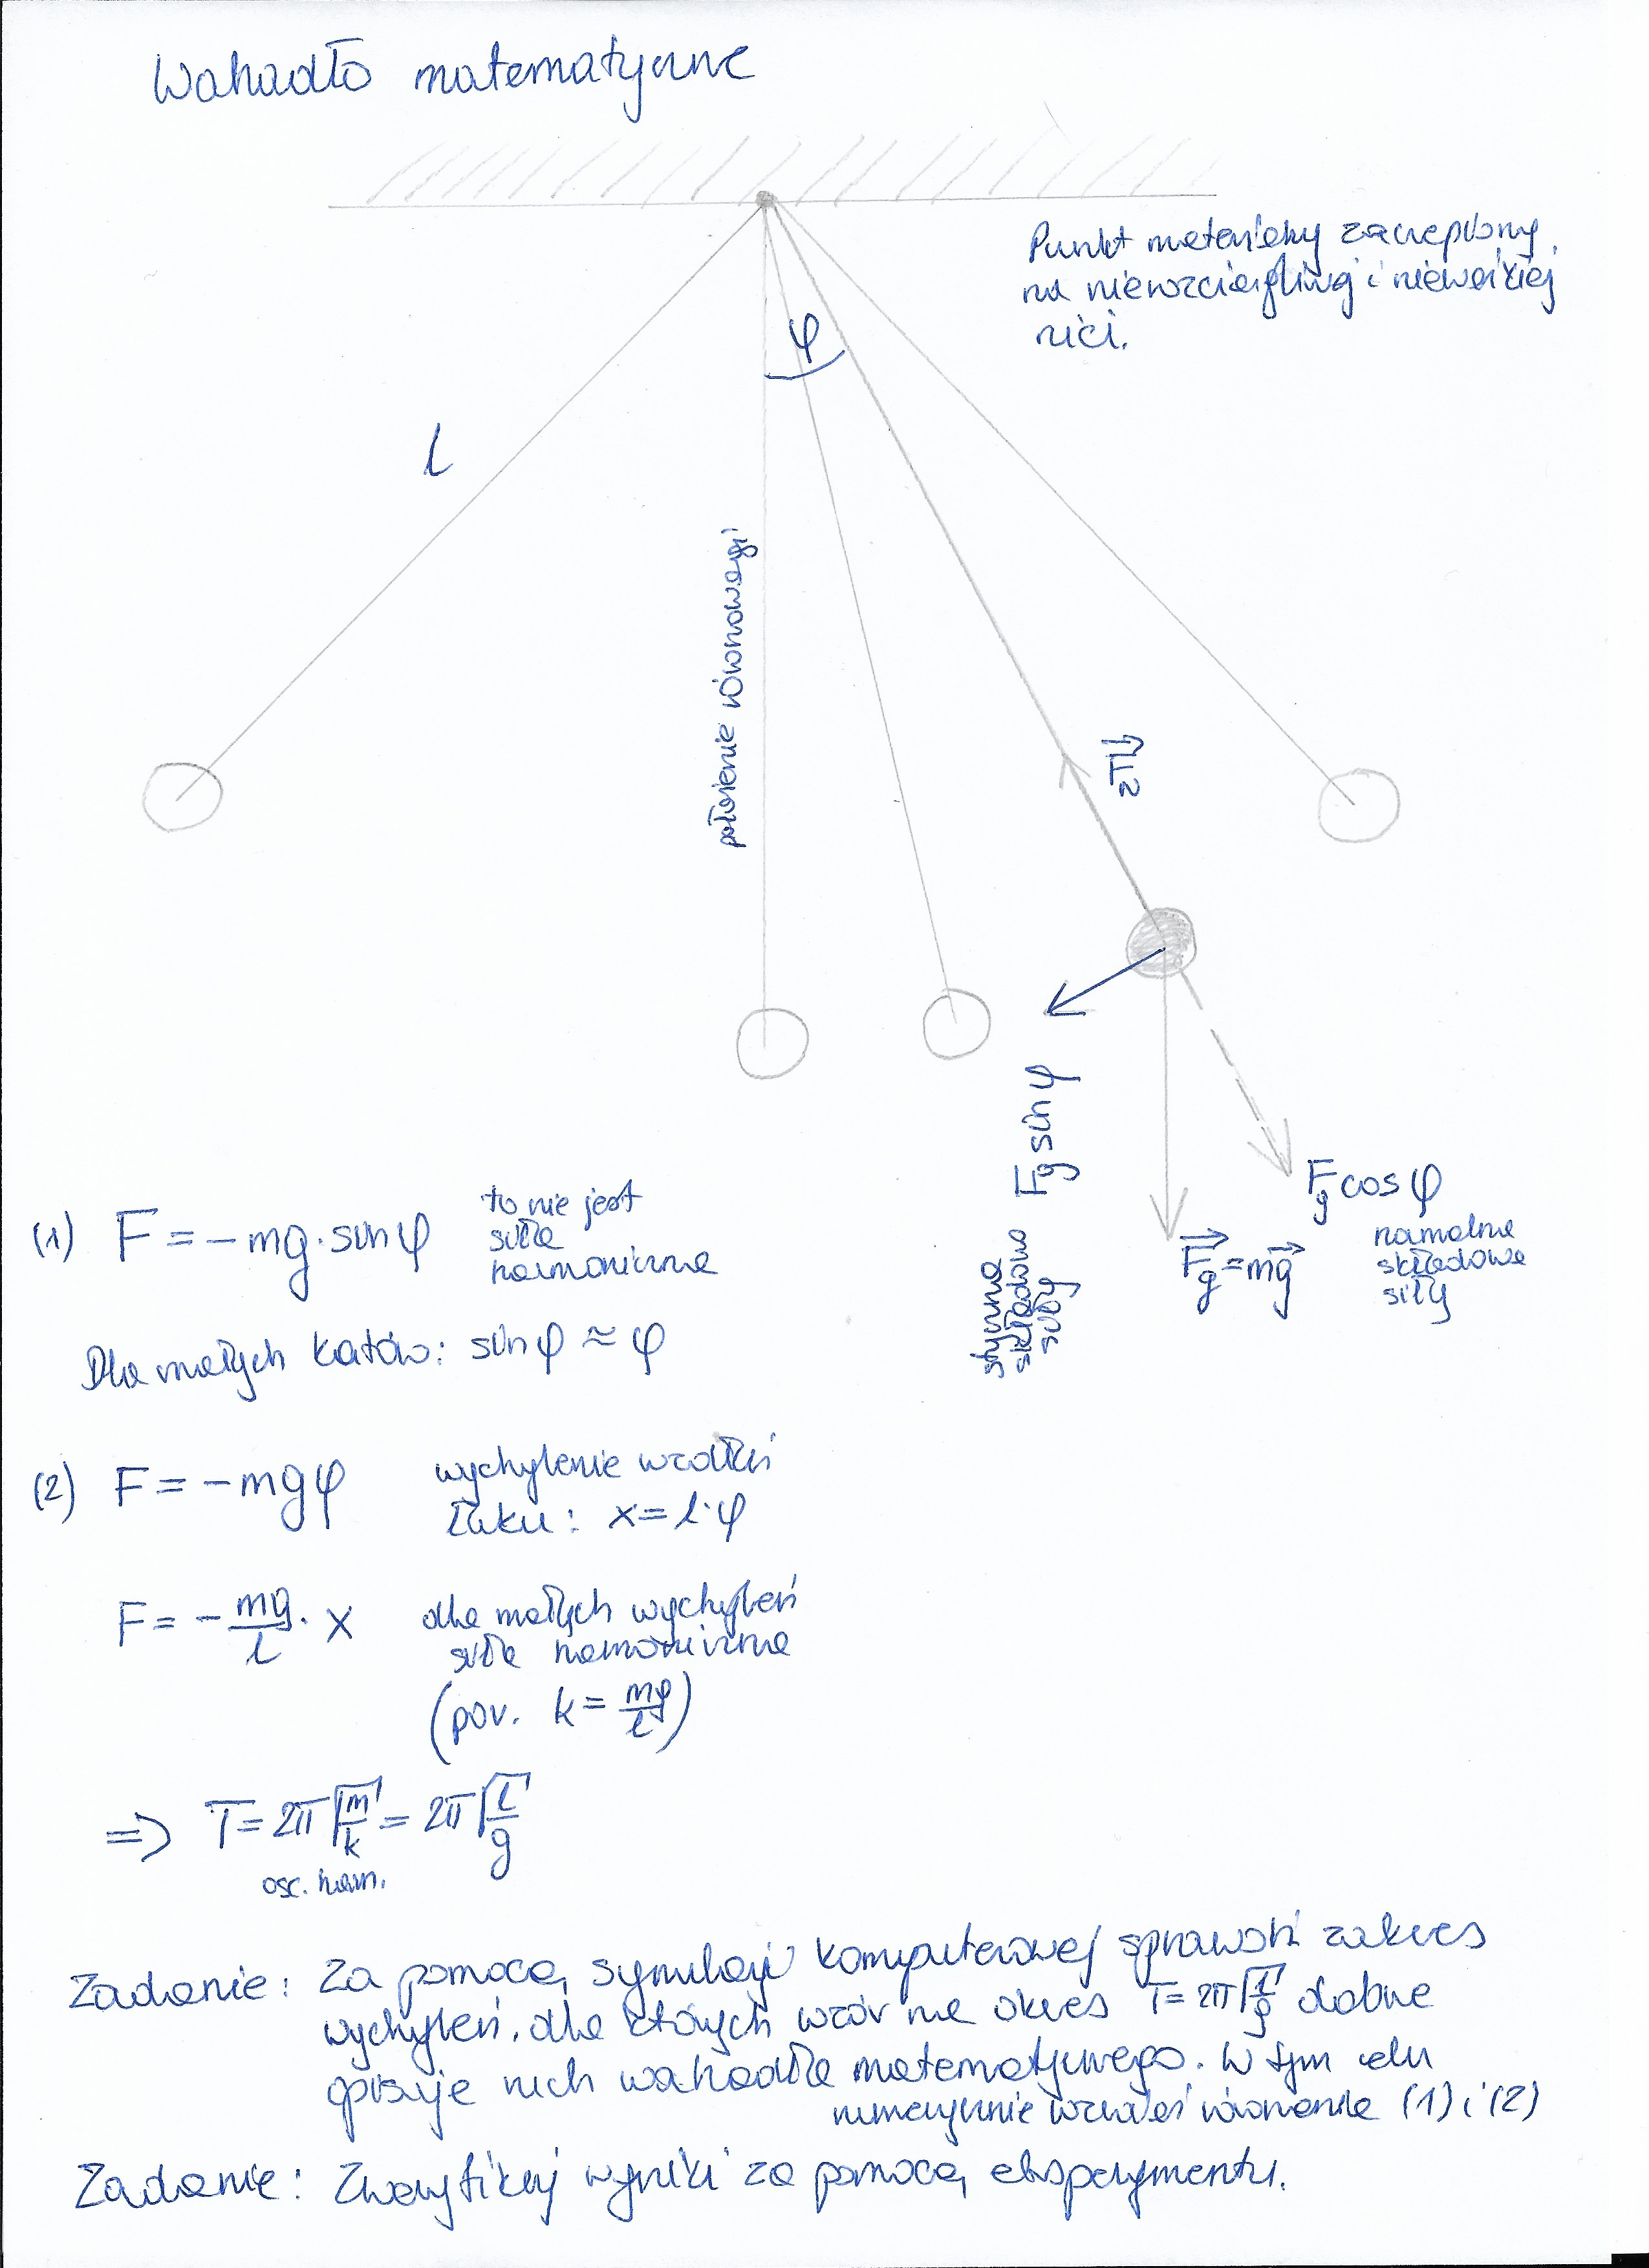 Wahadło matematyczne
Punkt materialny zaczepiony
na nierozciągliwej i nieważkiej
nici.
φ
l
położenie równowagi
F_g sin φ
styczna
składowa
siły
F_g cos φ
normalna
składowa
siły
F_g = mg
(1) F = - mg · sin φ
to nie jest
siła
harmoniczna
Dla małych kątów: sin φ ≈ φ
(2) F = - mg φ
wychylenie wzdłuż
łuku: x = l · φ
F = - mg/l · x
dla małych wychyleń
siła harmoniczna
(por. k = mg/l)
⇒ T = 2π √(m/k) = 2π √(l/g)
osc. harm.
Zadanie: Za pomocą symulacji komputerowej sprawdź zakres
wychyleń, dla których wzór na okres T = 2π √(l/g) dobrze
opisuje ruch wahadła matematycznego. W tym celu
numerycznie rozwiąż równania (1) i (2)
Zadanie: Zweryfikuj wyniki za pomocą eksperymentu.